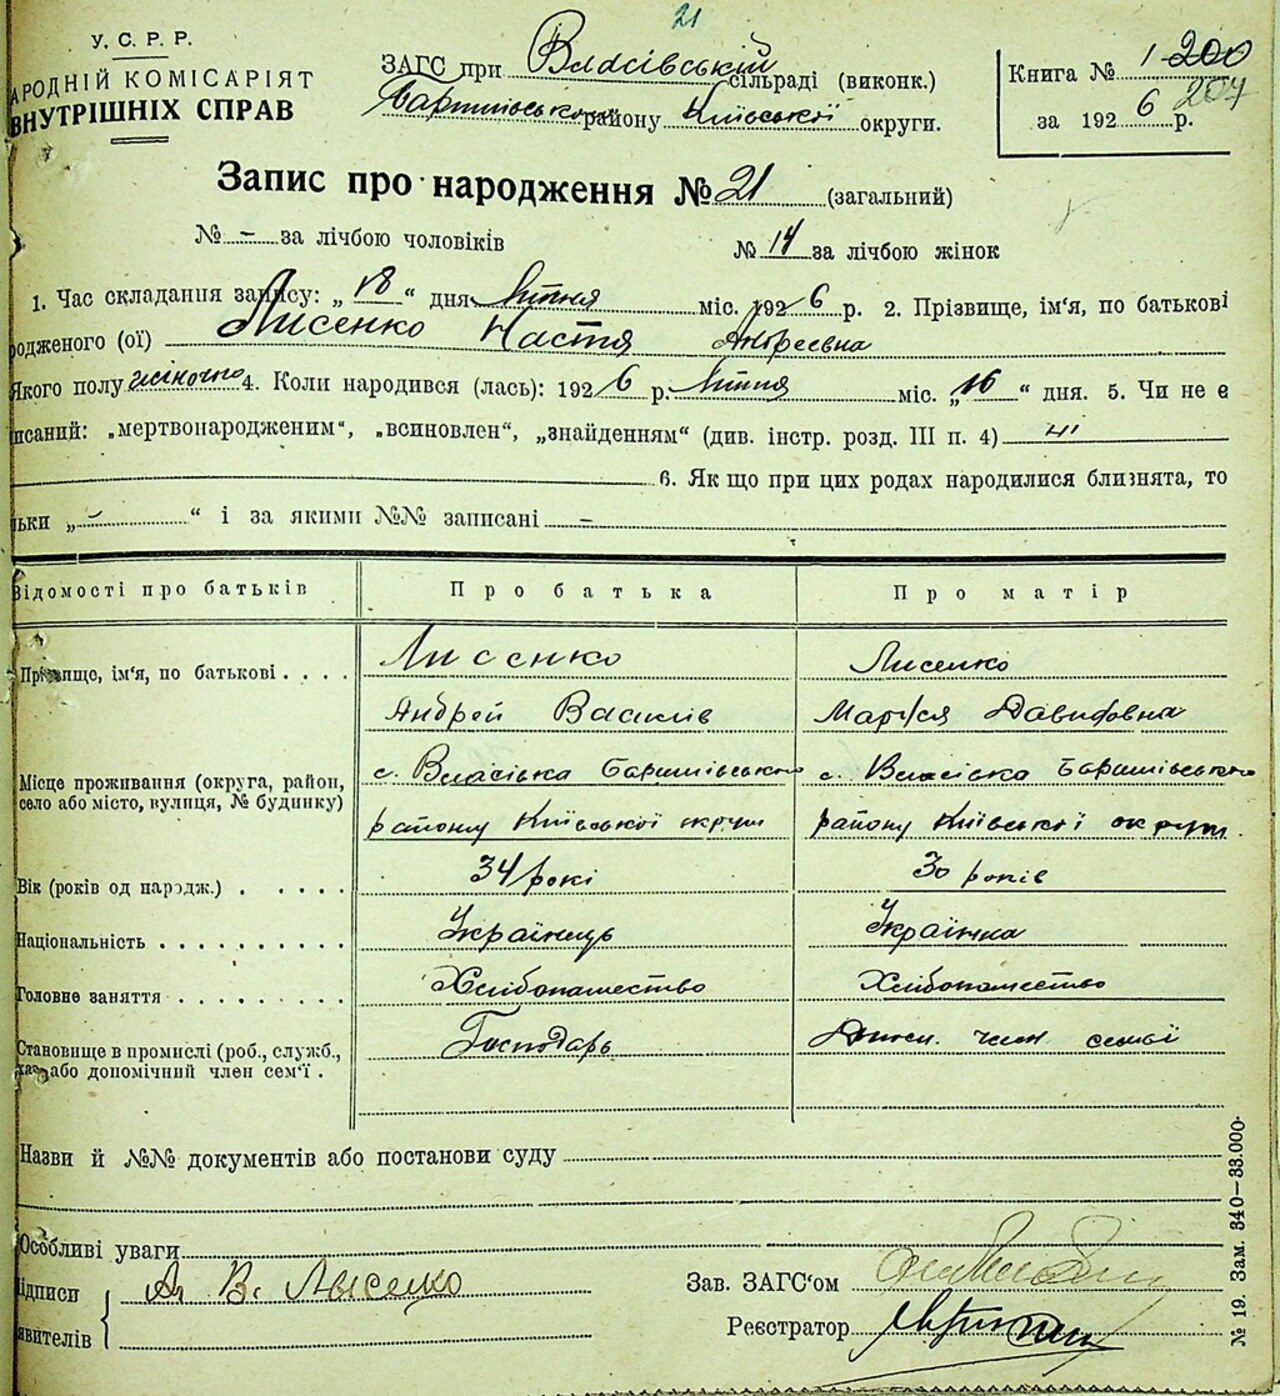 21
У. С. Р. Р.
АРОДНІЙ КОМІСАРІЯТ
ВНУТРІШНІХ СПРАВ
ЗАГС при Власівській сільраді (виконк.)
Баришівського району Київської округи.
Книга № 1 200
204
за 1926 р.
Запис про народження № 21 (загальний)
№ – за лічбою чоловіків № 14 за лічбою жінок
1. Час складання запису: „18“ дня Квітня міс. 1926 р. 2. Прізвище, ім'я, по батькові
родженого (ої) Лисенко Настя Андреевна
Якого полу жіночого 4. Коли народився (лась): 1926 р. Квітня міс. „16“ дня. 5. Чи не є
писаний: „мертвонародженим“, „всиновлен“, „знайденням“ (див. інстр. розд. III п. 4) ні
6. Як що при цих родах народилися близнята, то
льки „–“ і за якими №№ записані –
Відомості про батьків Про батька Про матір
Прізвище, ім'я, по батькові . . . . Лисенко Лисенко
Андрей Васильів Марфея Давидовна
Місце проживання (округа, район, село або місто, вулиця, № будинку) с. Власівка Баришівського с. Власівка Баришівського
району Київської округи району Київської округи.
Вік (років од народж.) . . . . . 34 рокі 30 років
Національність . . . . . . . . . . Українець Українка
Головне заняття . . . . . . . . . Хлібопашество Хлібопашество
Становище в промислі (роб., служб., хаз., або допомічний член сем'ї . Господарь Допом. член семьї
Назви й №№ документів або постанови суду
Особливі уваги
ідписи Ан В. Лысенко Зав. ЗАГС'ом
явителів Реєстратор
№ 19. Зам. 340—33.000.